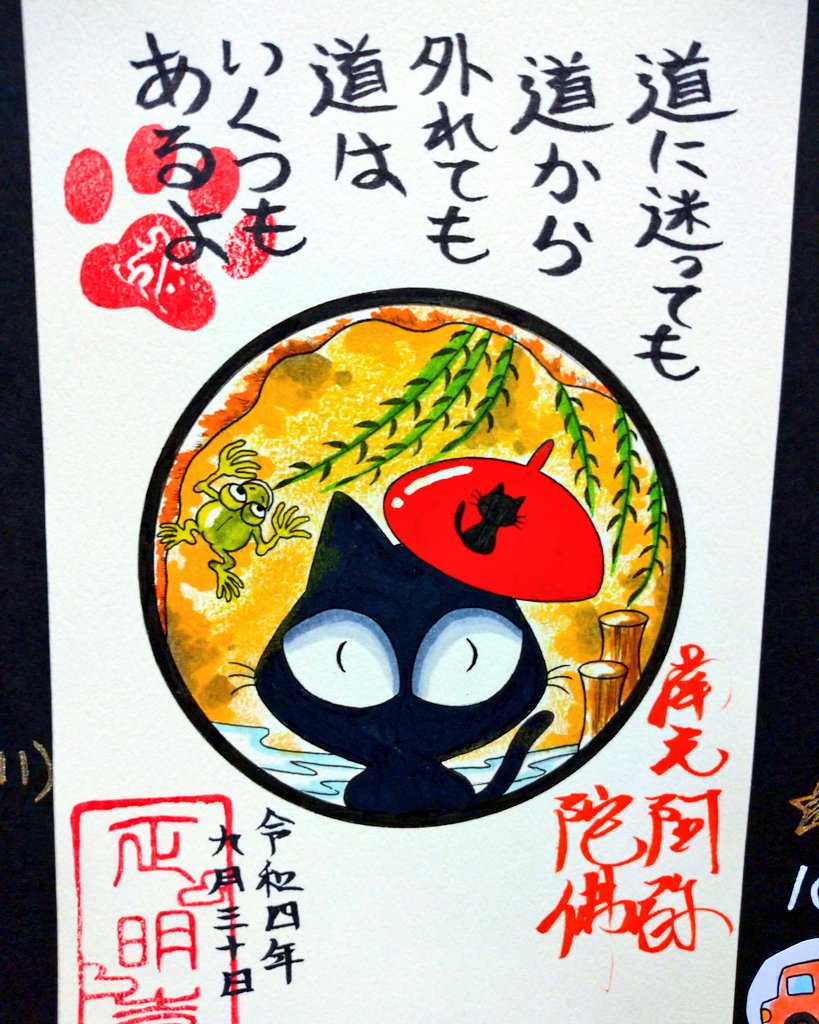 道に迷っても
道から
外れても
道は
いくつも
あるよ
南无阿弥
陀佛
令和四年
九月三十日
正明